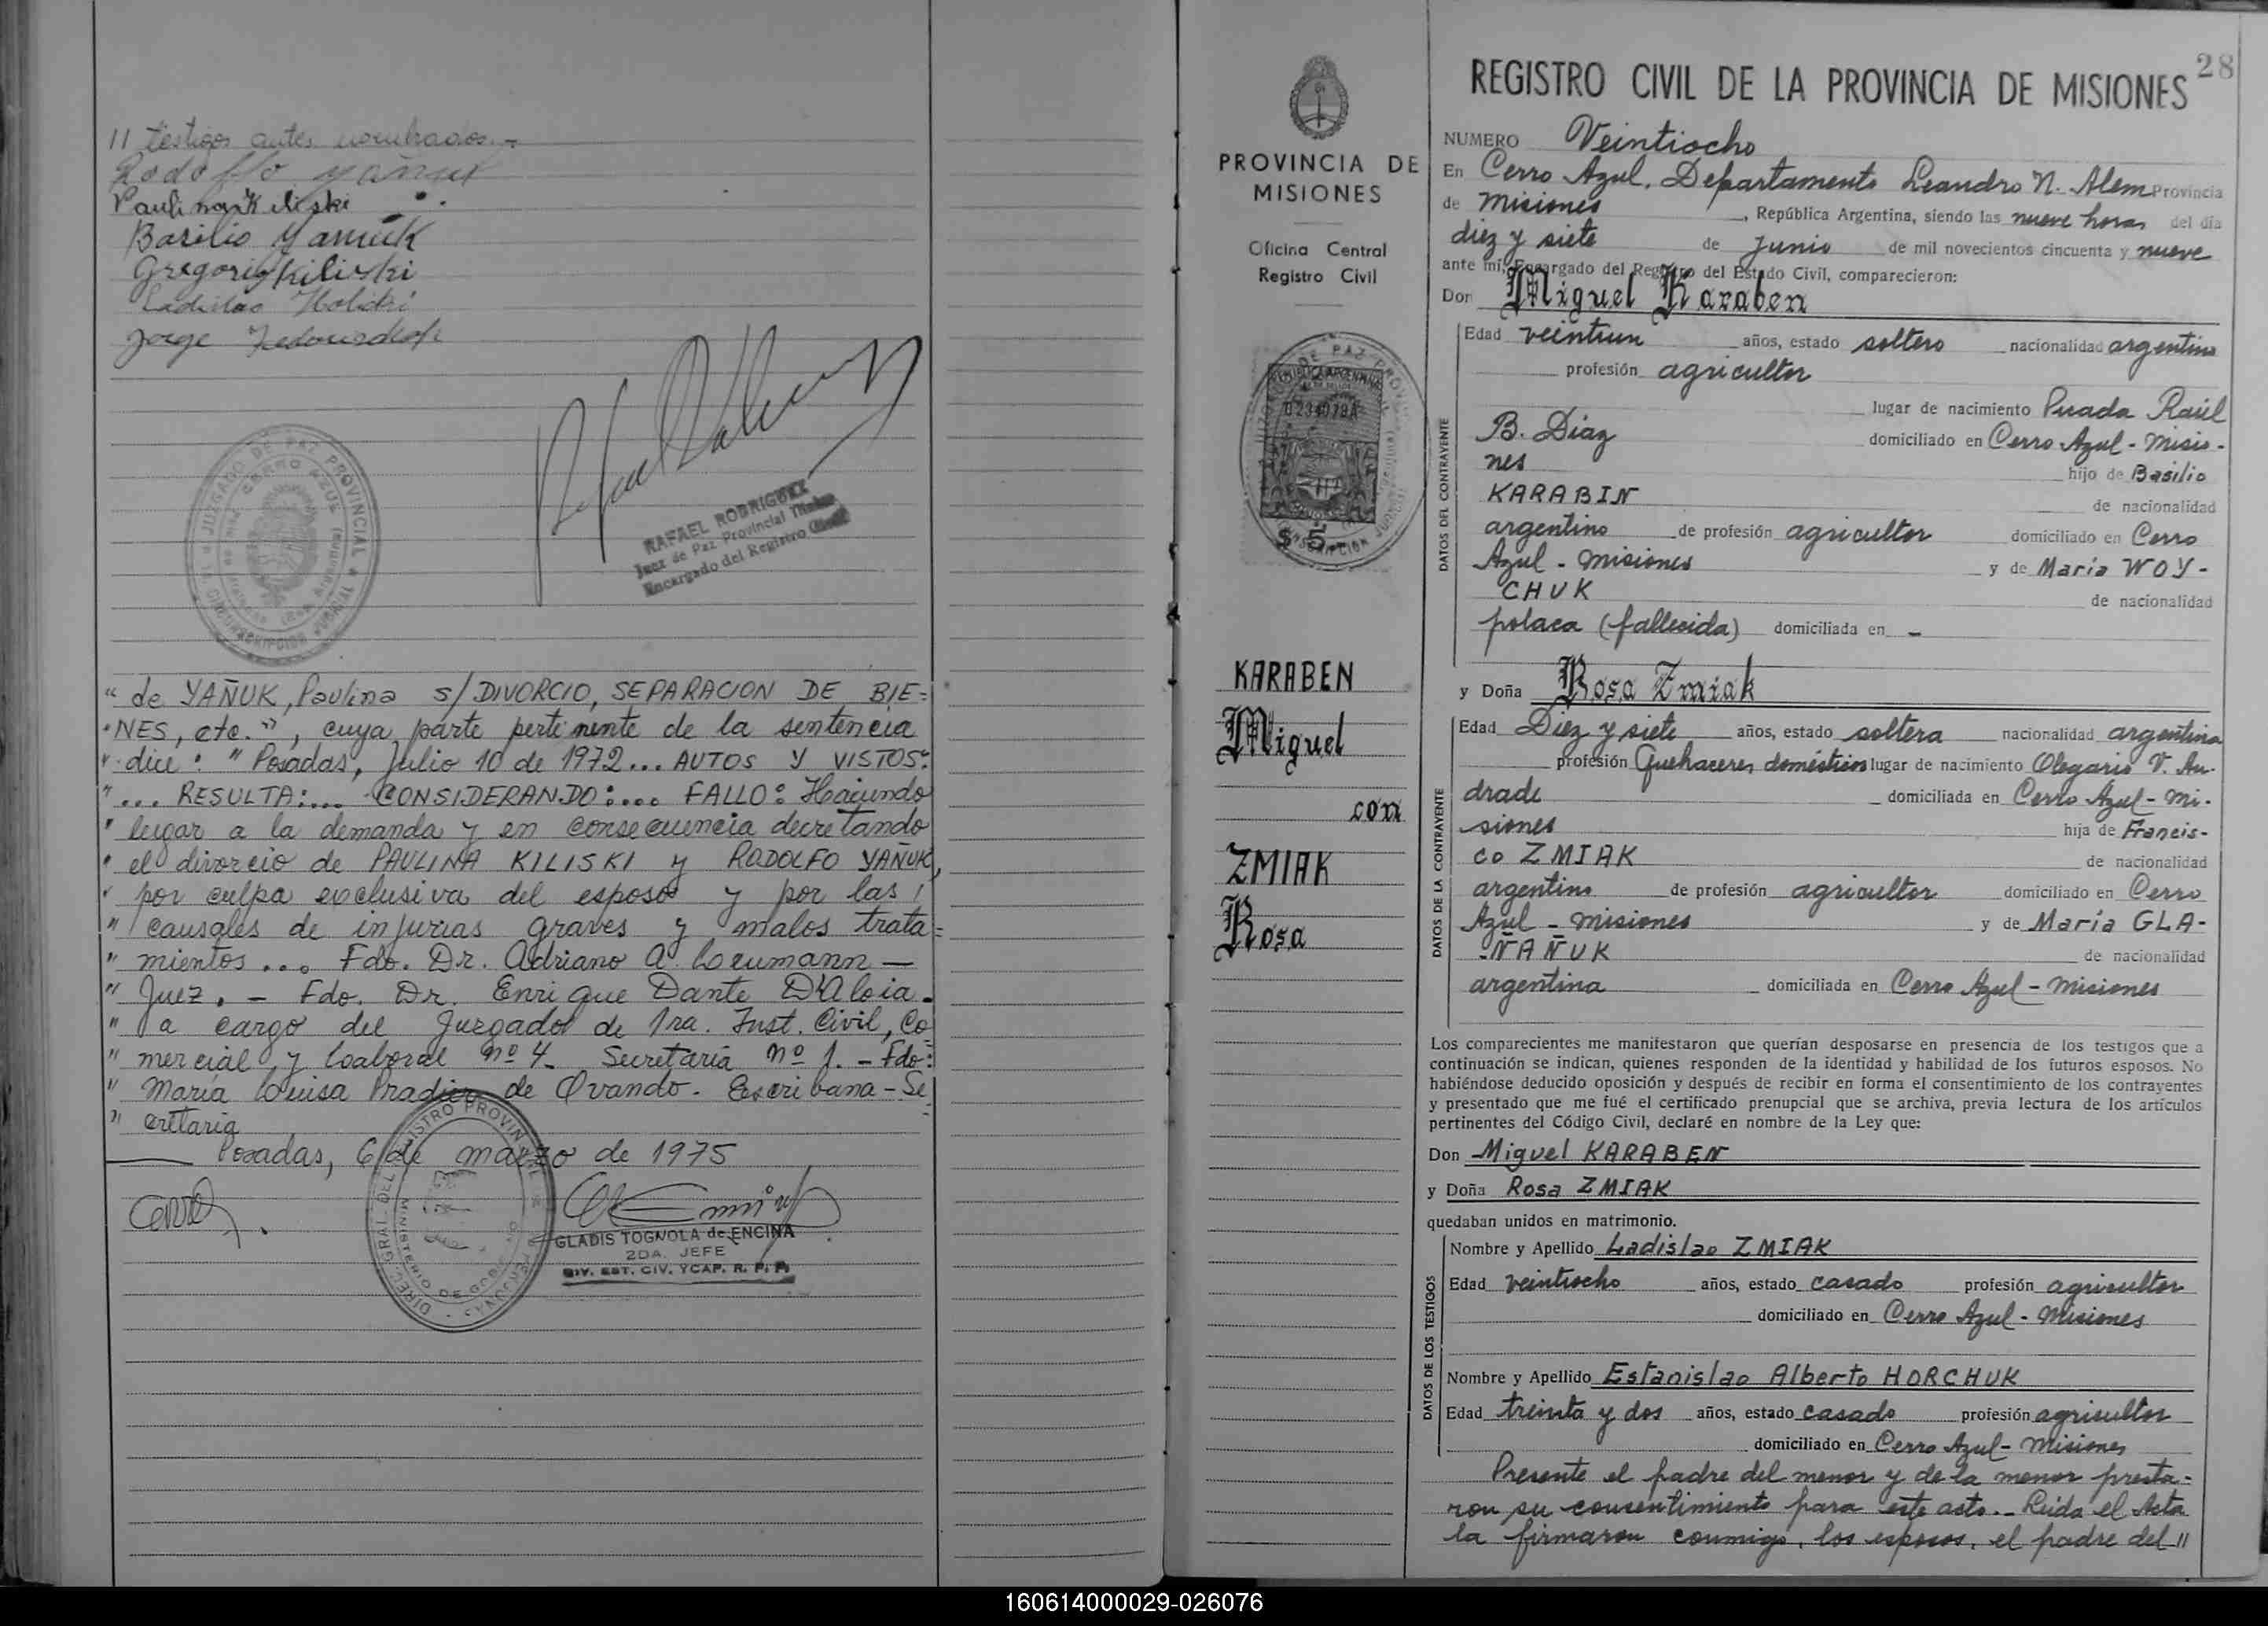 11 testigos antes nombrados.-
Rodolfo Yañuk
Paulina Kiliski
Basilio Yanuk
Gregorio Kiliski
Ladislao Holicki
Jorge
JUZGADO DE PAZ PROVINCIAL
CERRO AZUL
CIRCUNSCRIPCION
RAFAEL ROBRIGUEZ
Juez de Paz Provincial Titular
Encargado del Registro Civil
" de YAÑUK, Paulina s/ DIVORCIO, SEPARACION DE BIE=
" NES, etc.", cuya parte pertinente de la sentencia
" dice: " Posadas, Julio 10 de 1972... AUTOS Y VISTOS:
" ... RESULTA:... CONSIDERANDO:... FALLO: Haciendo
" lugar a la demanda y en consecuencia decretando
" el divorcio de PAULINA KILISKI y RODOLFO YAÑUK,
" por culpa exclusiva del esposo y por las
" causales de injurias graves y malos trata=
" mientos ... Fdo. Dr. Adriano A. Leumann —
" Juez. - Fdo. Dr. Enrique Dante D'Aloia.
" a cargo del Juzgado de 1ra. Inst. Civil, Co=
" mercial y Laboral nº 4. Secretaría nº 1. - Fdo:
" María Luisa Pradier de Ovando. Escribana - Se=
" cretaria
Posadas, 6 de marzo de 1975
DIREC. GRAL. DEL REGISTRO PROVINCIAL DE
MINISTERIO DE GOB.
GLADIS TOGNOLA de ENCINA
2DA. JEFE
DIV. EST. CIV. Y CAP. R. P. P.
PROVINCIA DE
MISIONES
Oficina Central
Registro Civil
JUZGADO DE PAZ PROV.
REPUBLICA ARGENTINA
$ 5.-
CIRCUNSCRIPCION
KARABEN
Miguel
con
ZMIAK
Rosa
28
REGISTRO CIVIL DE LA PROVINCIA DE MISIONES
NUMERO Veintiocho
En Cerro Azul, Departamento Leandro N. Alem Provincia
de Misiones, República Argentina, siendo las nueve horas del día
diez y siete de Junio de mil novecientos cincuenta y nueve
ante mí, Encargado del Registro del Estado Civil, comparecieron:
Don Miguel Karaben
DATOS DEL CONTRAYENTE
Edad veintiun años, estado soltero nacionalidad argentino
profesión agricultor
lugar de nacimiento Picada Raúl
B. Díaz domiciliado en Cerro Azul - Misio-
nes hijo de Basilio
KARABIN de nacionalidad
argentino de profesión agricultor domiciliado en Cerro
Azul - Misiones y de María WOY-
CHUK de nacionalidad
polaca (fallecida) domiciliada en -
y Doña Rosa Zmiak
DATOS DE LA CONTRAYENTE
Edad Diez y siete años, estado soltera nacionalidad argentina
profesión Quehaceres domésticos lugar de nacimiento Olegario V. An-
drade domiciliada en Cerro Azul - Mi-
siones hija de Francis-
co ZMIAK de nacionalidad
argentino de profesión agricultor domiciliado en Cerro
Azul - Misiones y de María GLA-
ÑAÑUK de nacionalidad
argentina domiciliada en Cerro Azul - Misiones
Los comparecientes me manifestaron que querían desposarse en presencia de los testigos que a
continuación se indican, quienes responden de la identidad y habilidad de los futuros esposos. No
habiéndose deducido oposición y después de recibir en forma el consentimiento de los contrayentes
y presentado que me fué el certificado prenupcial que se archiva, previa lectura de los artículos
pertinentes del Código Civil, declaré en nombre de la Ley que:
Don Miguel KARABEN
y Doña Rosa ZMIAK
quedaban unidos en matrimonio.
DATOS DE LOS TESTIGOS
Nombre y Apellido Ladislao ZMIAK
Edad veintiocho años, estado casado profesión agricultor
domiciliado en Cerro Azul - Misiones
Nombre y Apellido Estanislao Alberto HORCHUK
Edad treinta y dos años, estado casado profesión agricultor
domiciliado en Cerro Azul - Misiones
Presente el padre del menor y de la menor presta-
ron su consentimiento para este acto.- Leída el Acta
la firmaron conmigo, los esposos, el padre del 11
160614000029-026076